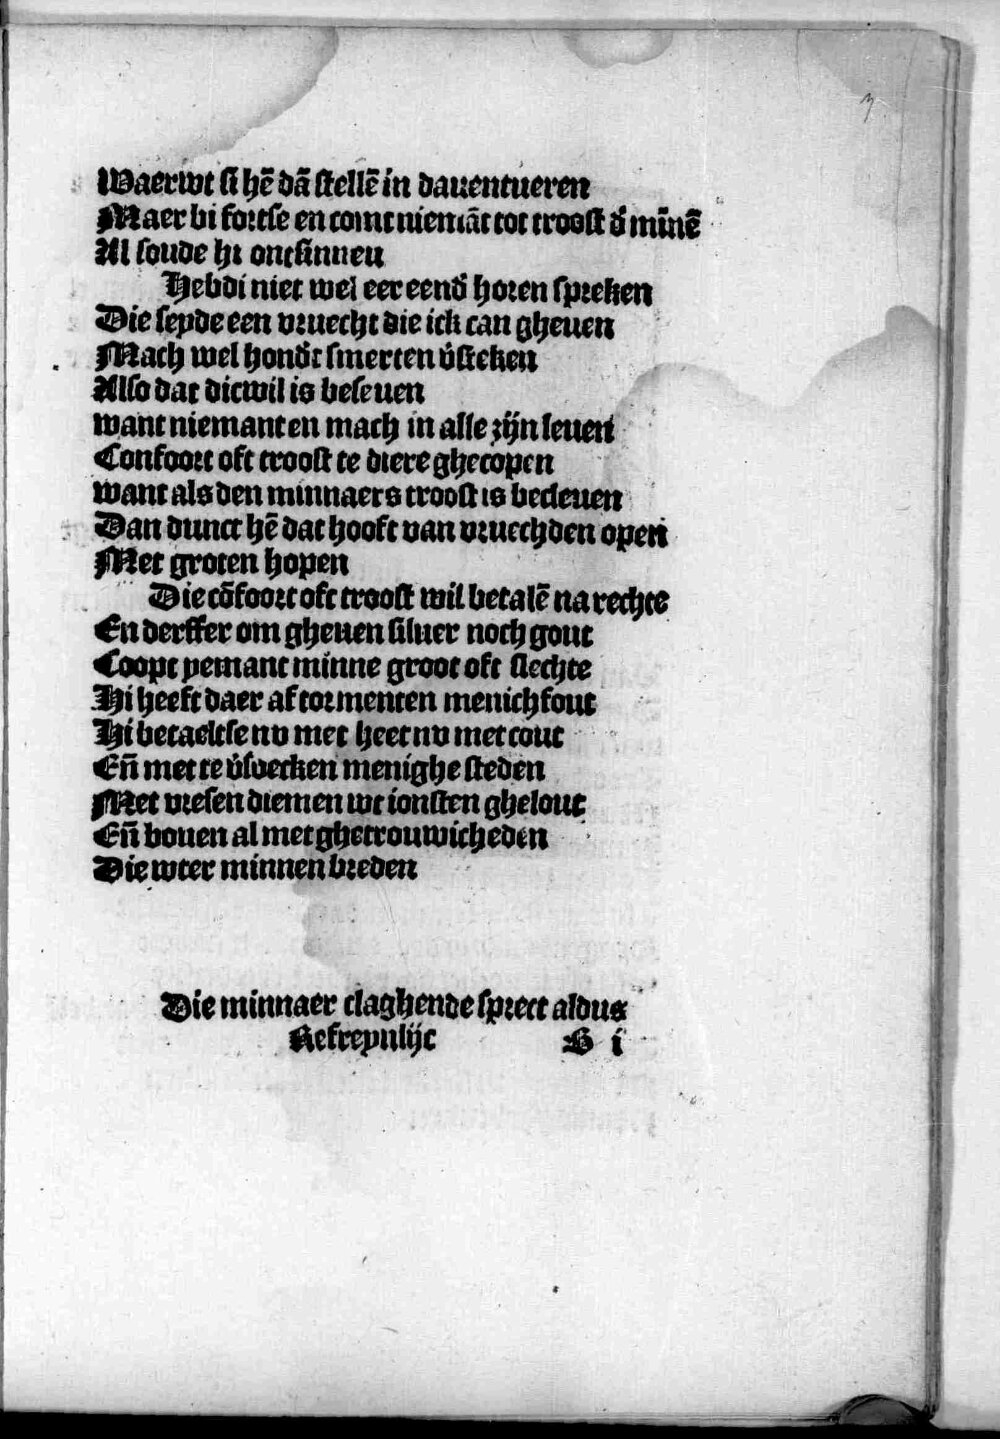 Waerwt si hē dā stellē in dauentueren
Maer bi fortse en comt niemāt tot troost d' mīnē
Al soude hi ontsinnen
Hebdi niet wel eer eend' horen spreken
Die seyde een vruecht die ick can gheuen
Mach wel hond't smerten v'steken
Also dat dicwil is beseuen
want niemant en mach in alle zijn leuen
Confoort oft troost te diere ghecopen
want als den minnaers troost is becleuen
Dan dunct hē dat hooft van vruechden open
Met groten hopen
Die cōfoort oft troost wil betalē na rechte
En derffer om gheuen siluer noch gout
Coopt yemant minne groot oft slechte
Hi heeft daer af tormenten menichfout
Hi betaeltse nv met heet nv met cout
Eñ met te v'soecken menighe steden
Met vresen diemen wt ionsten ghelout
Eñ bouen al met ghetrouwicheden
Die wter minnen breden
Die minnaer claghende sprect aldus
Refreynlijc B i